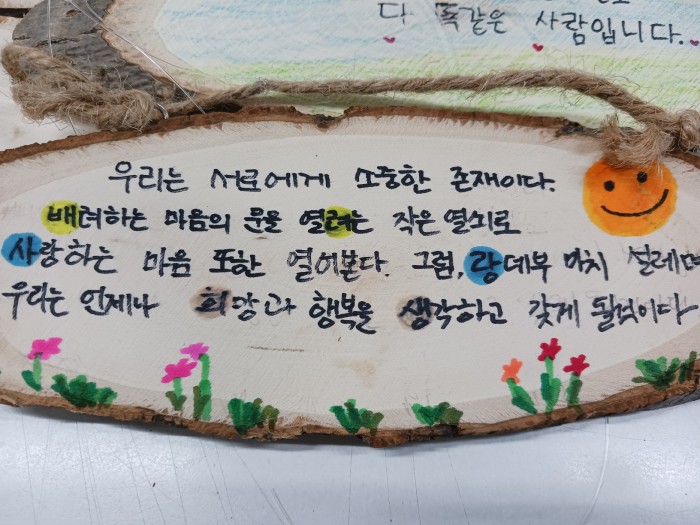 다 똑같은 사람입니다.
우리는 서로에게 소중한 존재이다.
배려하는 마음의 문을 열려는 작은 열쇠로
사랑하는 마음 또한 열어본다. 그럼, 랑데부 마치 설레며
우리는 언제나 희망과 행복을 생각하고 갖게 될것이다